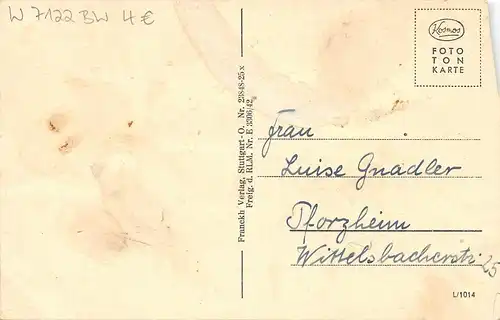 W 7122 BW 4 €
Kosmos
FOTO
TON
KARTE
Franckh Verlag, Stuttgart-O. Nr. 23848-25 x
Freig. d. RLM. Nr. E 3306/42
Frau
Luise Gnadler
Pforzheim
Wittelsbacherstr. 25
L/1014